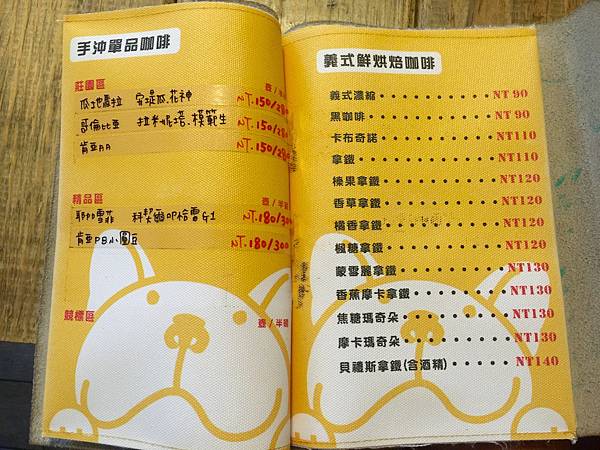 手沖單品咖啡
莊園區 壺/半磅
瓜地馬拉 安堤瓜.花神 NT.150/280
哥倫比亞 拉米妮塔.模範生 NT.150/280
肯亞AA NT.150/280
精品區 壺/半磅
耶加雪菲 科契爾 G1 NT.180/300
肯亞PB小圓豆 NT.180/300
競標區 壺/半磅
義式鮮烘焙咖啡
義式濃縮 NT 90
黑咖啡 NT 90
卡布奇諾 NT110
拿鐵 NT110
榛果拿鐵 NT120
香草拿鐵 NT120
橘香拿鐵 NT120
楓糖拿鐵 NT120
蒙雪麗拿鐵 NT130
香蕉摩卡拿鐵 NT130
焦糖瑪奇朵 NT130
摩卡瑪奇朵 NT130
貝禮斯拿鐵(含酒精) NT140